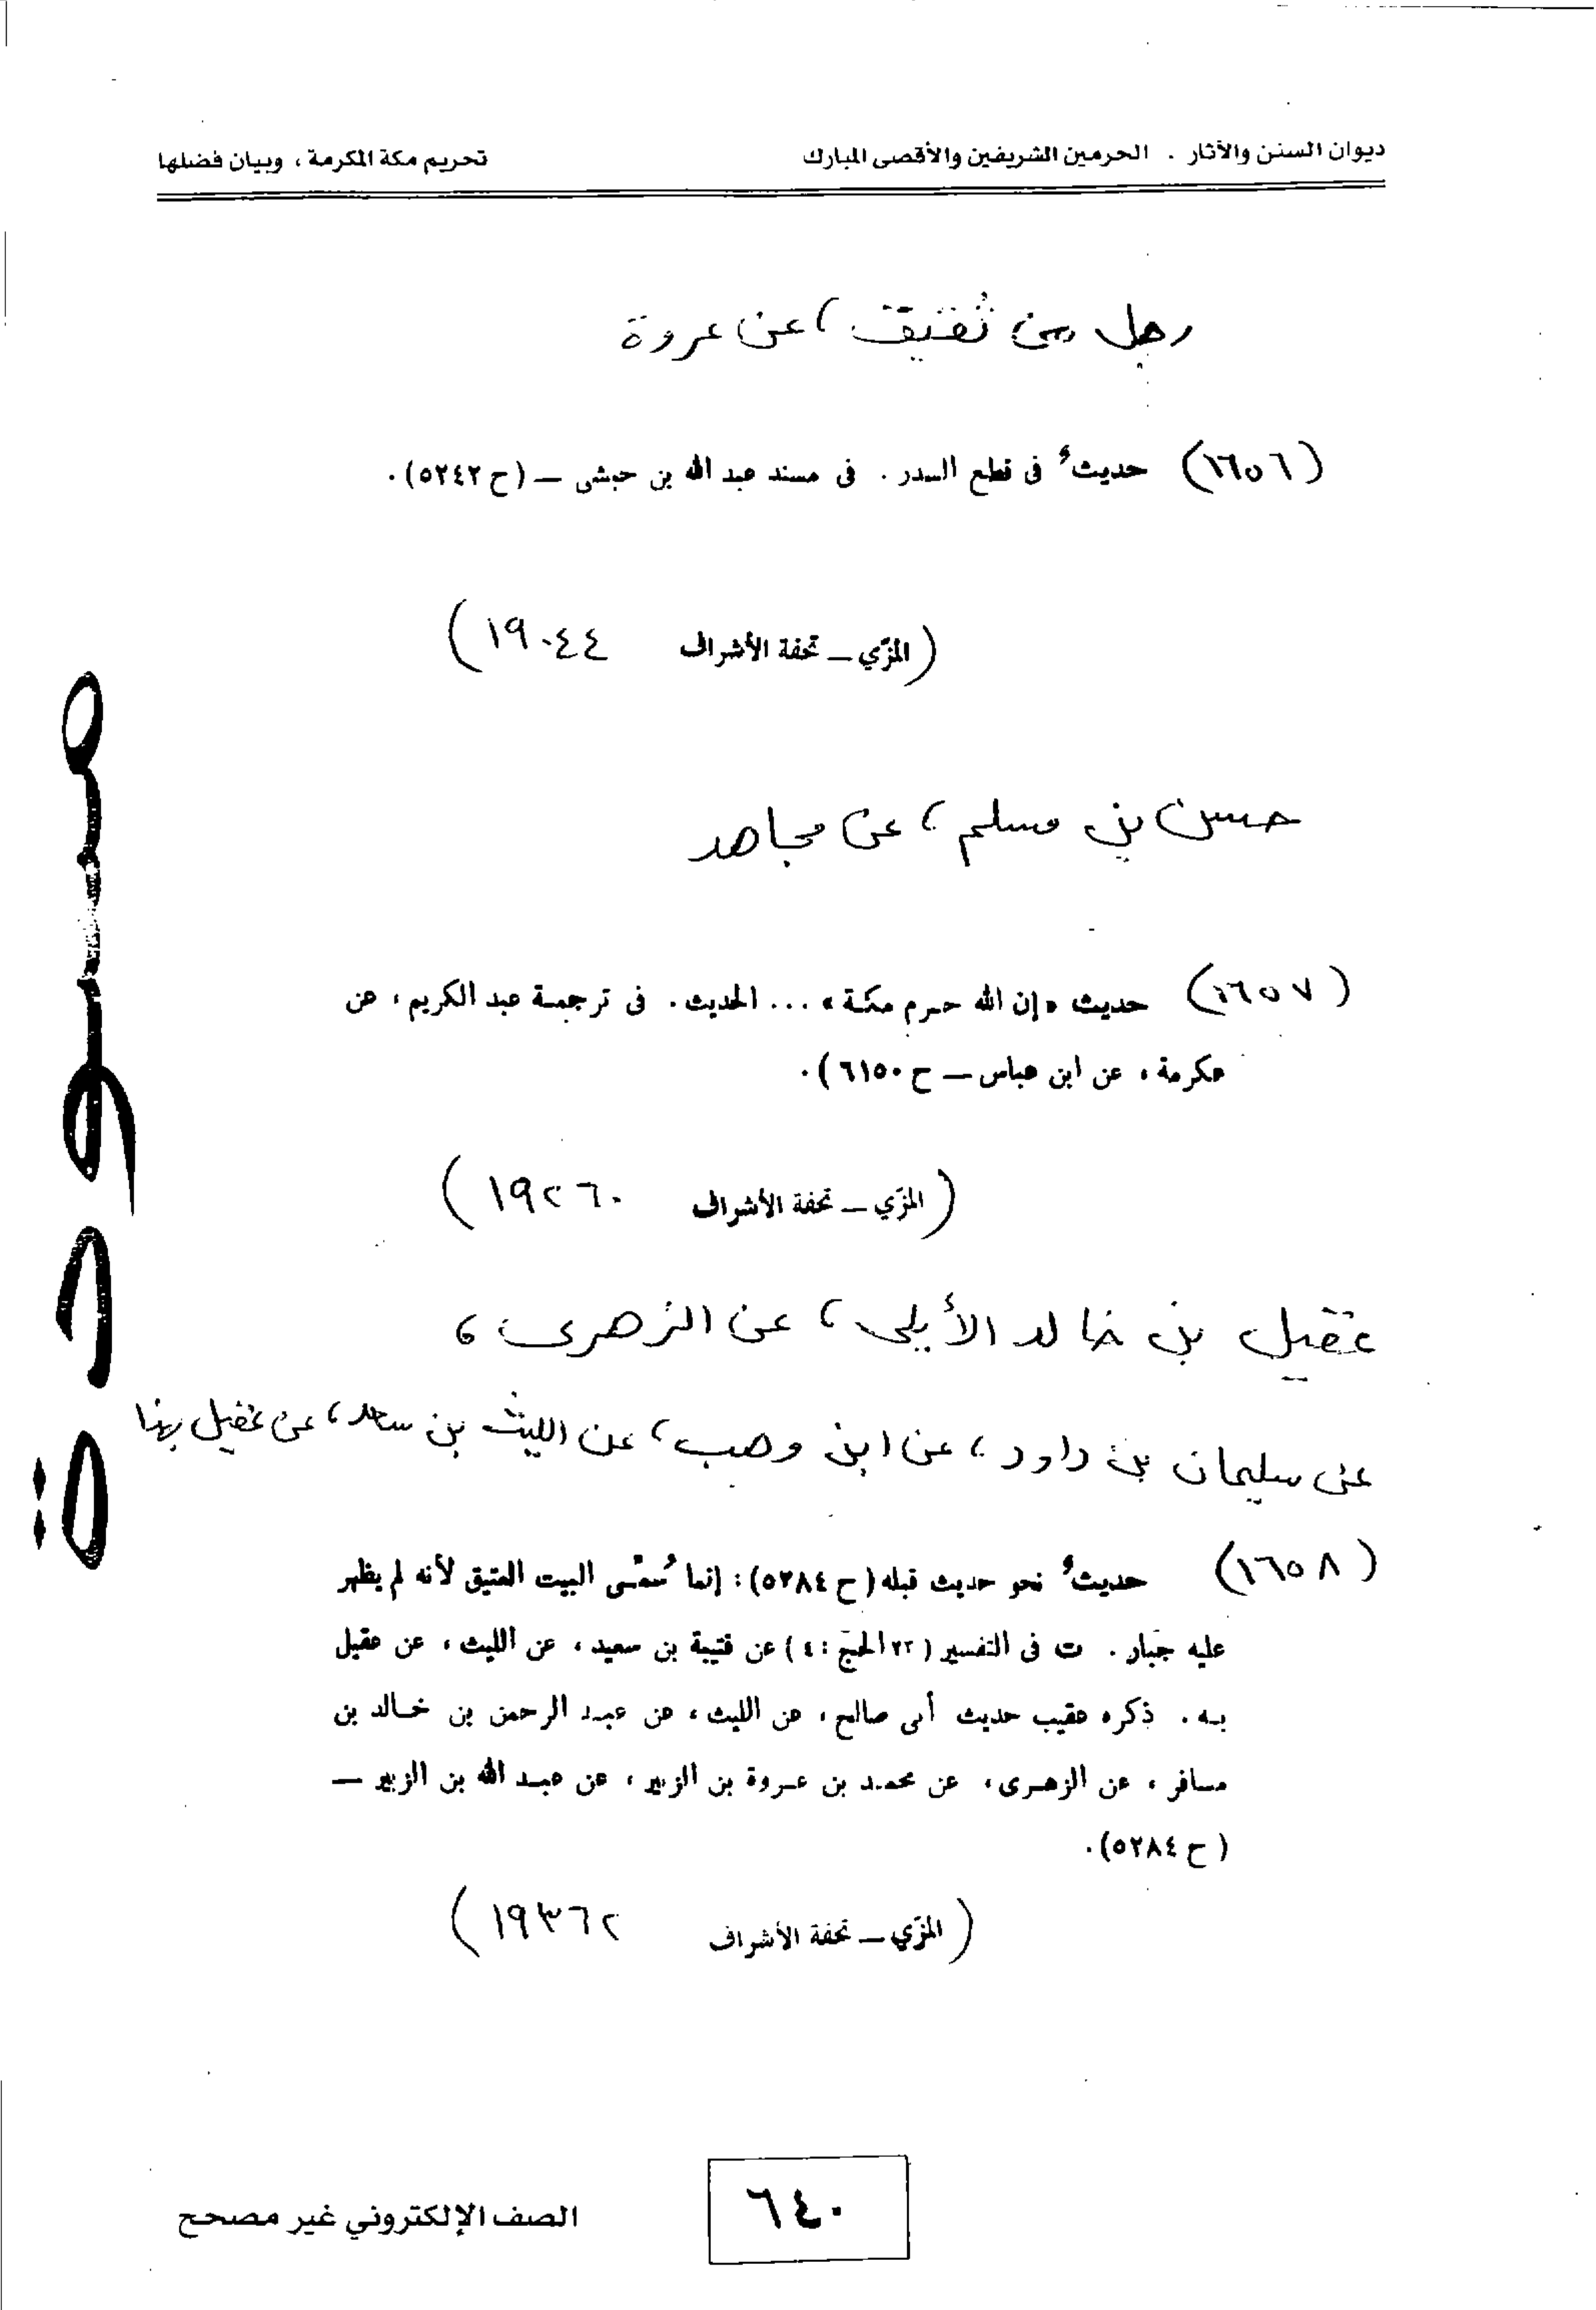 ديوان السنن والآثار . الحرمين الشريفين والأقصى المبارك
تحريم مكة المكرمة ، وبيان فضلها
رجل من ثقيف ، عن عروة
(١٦٥٦) حديثٌ فى قطع السدر . فى مسند عبد الله بن حبشى — (ح ٥٢٤٢) .
(المزّي — تحفة الأشراف ١٩٠٤٤)
حسن بن مسلم ، عن مجاهد
(١٦٥٧) حديث « إن الله حرم مكة » ... الحديث . فى ترجمة عبد الكريم ، عن
عكرمة ، عن ابن عباس — ح ٦١٥٠) .
(المزّي — تحفة الأشراف ١٩٢٦٠)
عقيل بن خالد الأيلى ، عن الزهرى ،
عن سليمان بن داود ، عن ابن وهب ، عن الليث بن سعد ، عن عقيل بهذا
(١٦٥٨) حديثٌ نحو حديث قبله (ح ٥٢٨٤) : إنما سُمّى البيت العتيق لأنه لم يظهر
عليه جَبار . ت فى التفسير (٢٢ الحجّ : ٤) عن قتيبة بن سعيد ، عن الليث ، عن عقيل
به . ذكره عقيب حديث أبى صالح ، عن الليث ، عن عبد الرحمن بن خالد بن
مسافر ، عن الزهرى ، عن محمد بن عروة بن الزبير ، عن عبد الله بن الزبير —
(ح ٥٢٨٤) .
(المزّي — تحفة الأشراف ١٩٣٦٢)
مسودة
٦٤٠
الصف الإلكتروني غير مصحح